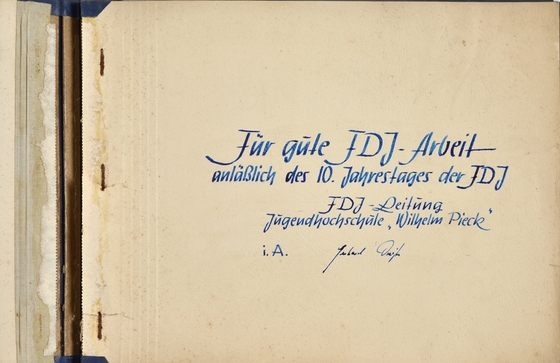 Für gute FDJ-Arbeit
anläßlich des 10. Jahrestages der FDJ
FDJ-Leitung
Jugendhochschule „Wilhelm Pieck"
i.A.